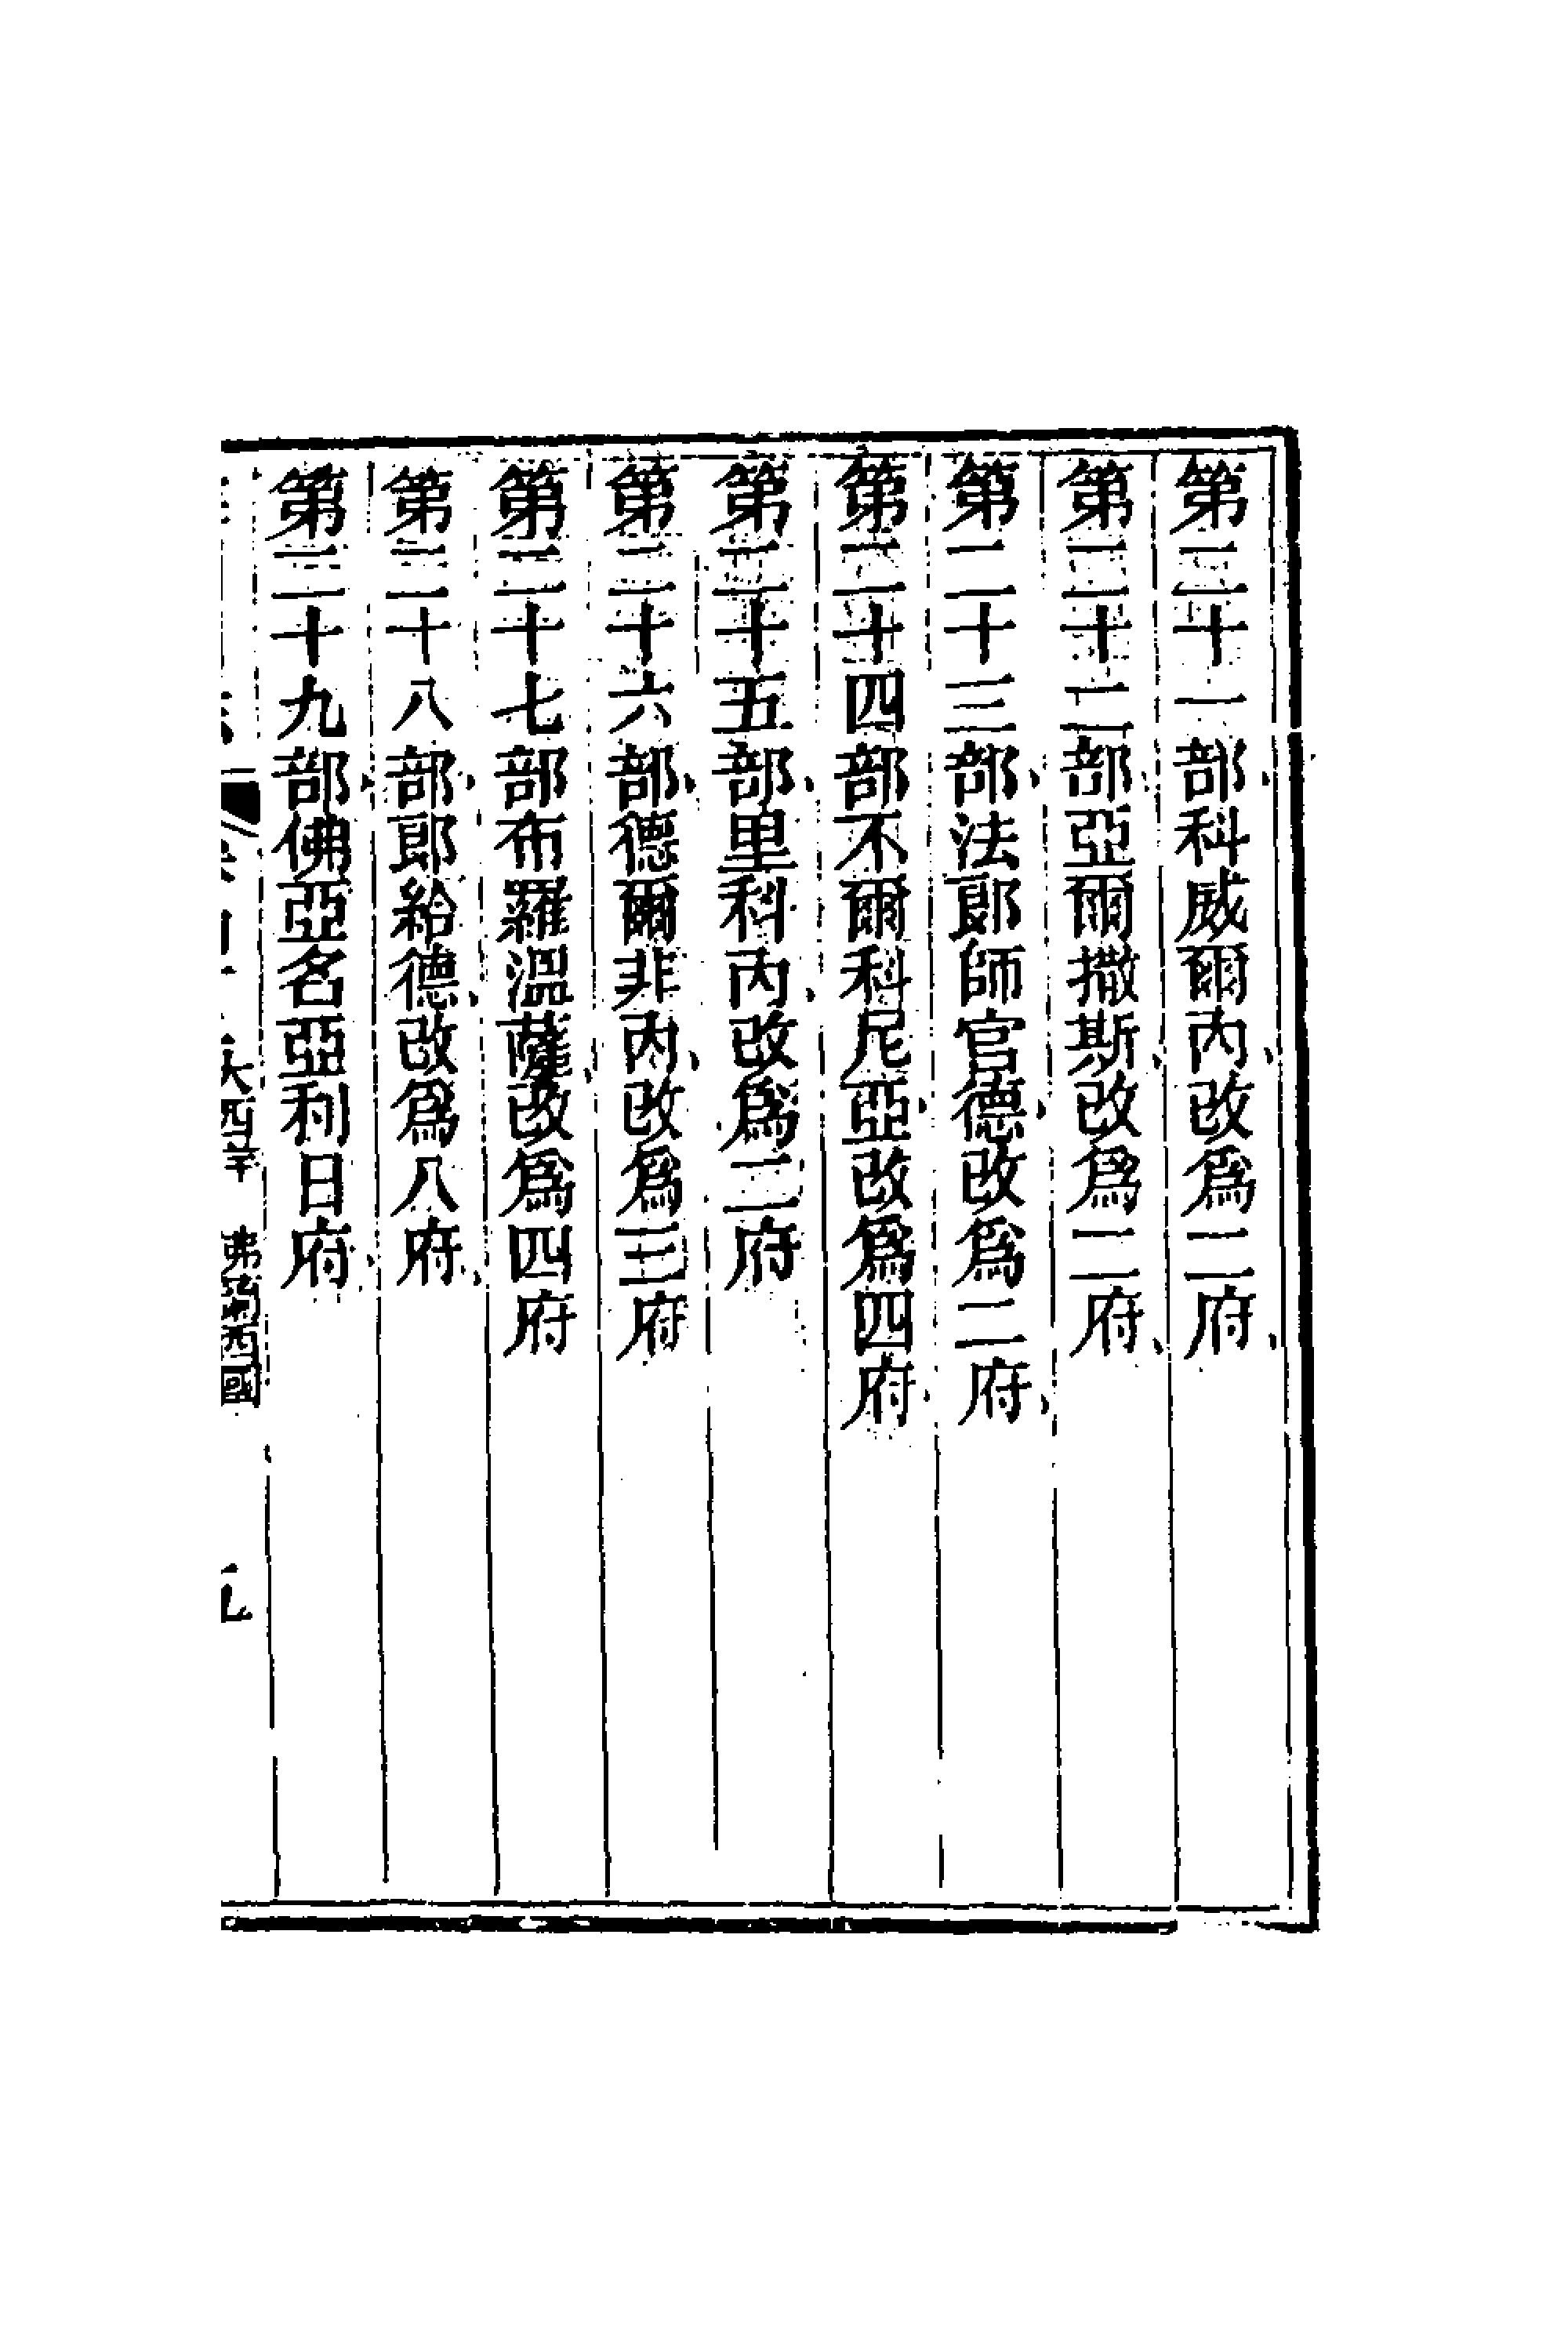 第二十一部科威爾內改爲二府
第二十二部亞爾撒斯改爲二府
第二十三部法郎師官德改爲二府
第二十四部不爾科尼亞改爲四府
第二十五部里科內改爲二府
第二十六部德爾非內改爲三府
第二十七部布羅溫薩改爲四府
第二十八部郎給德改爲八府
第二十九部佛亞名亞利日府
大西洋 佛蘭西國
九